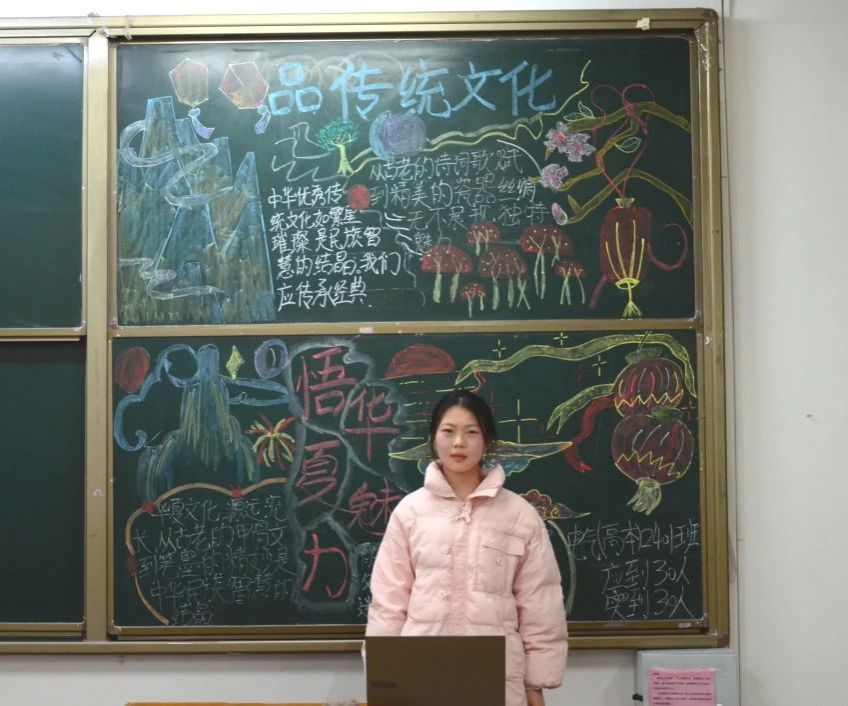 品传统文化
从古老的诗词歌赋
到精美的瓷器丝绸
无不展现独特
魅力
中华优秀传
统文化如繁星
璀璨是民族智
慧的结晶。我们
应传承经典
悟华夏魅力
华夏文化,源远流
长,从古老的甲骨文
到笔墨的精妙美
中华民族智慧的
结晶
应到30人
实到30人